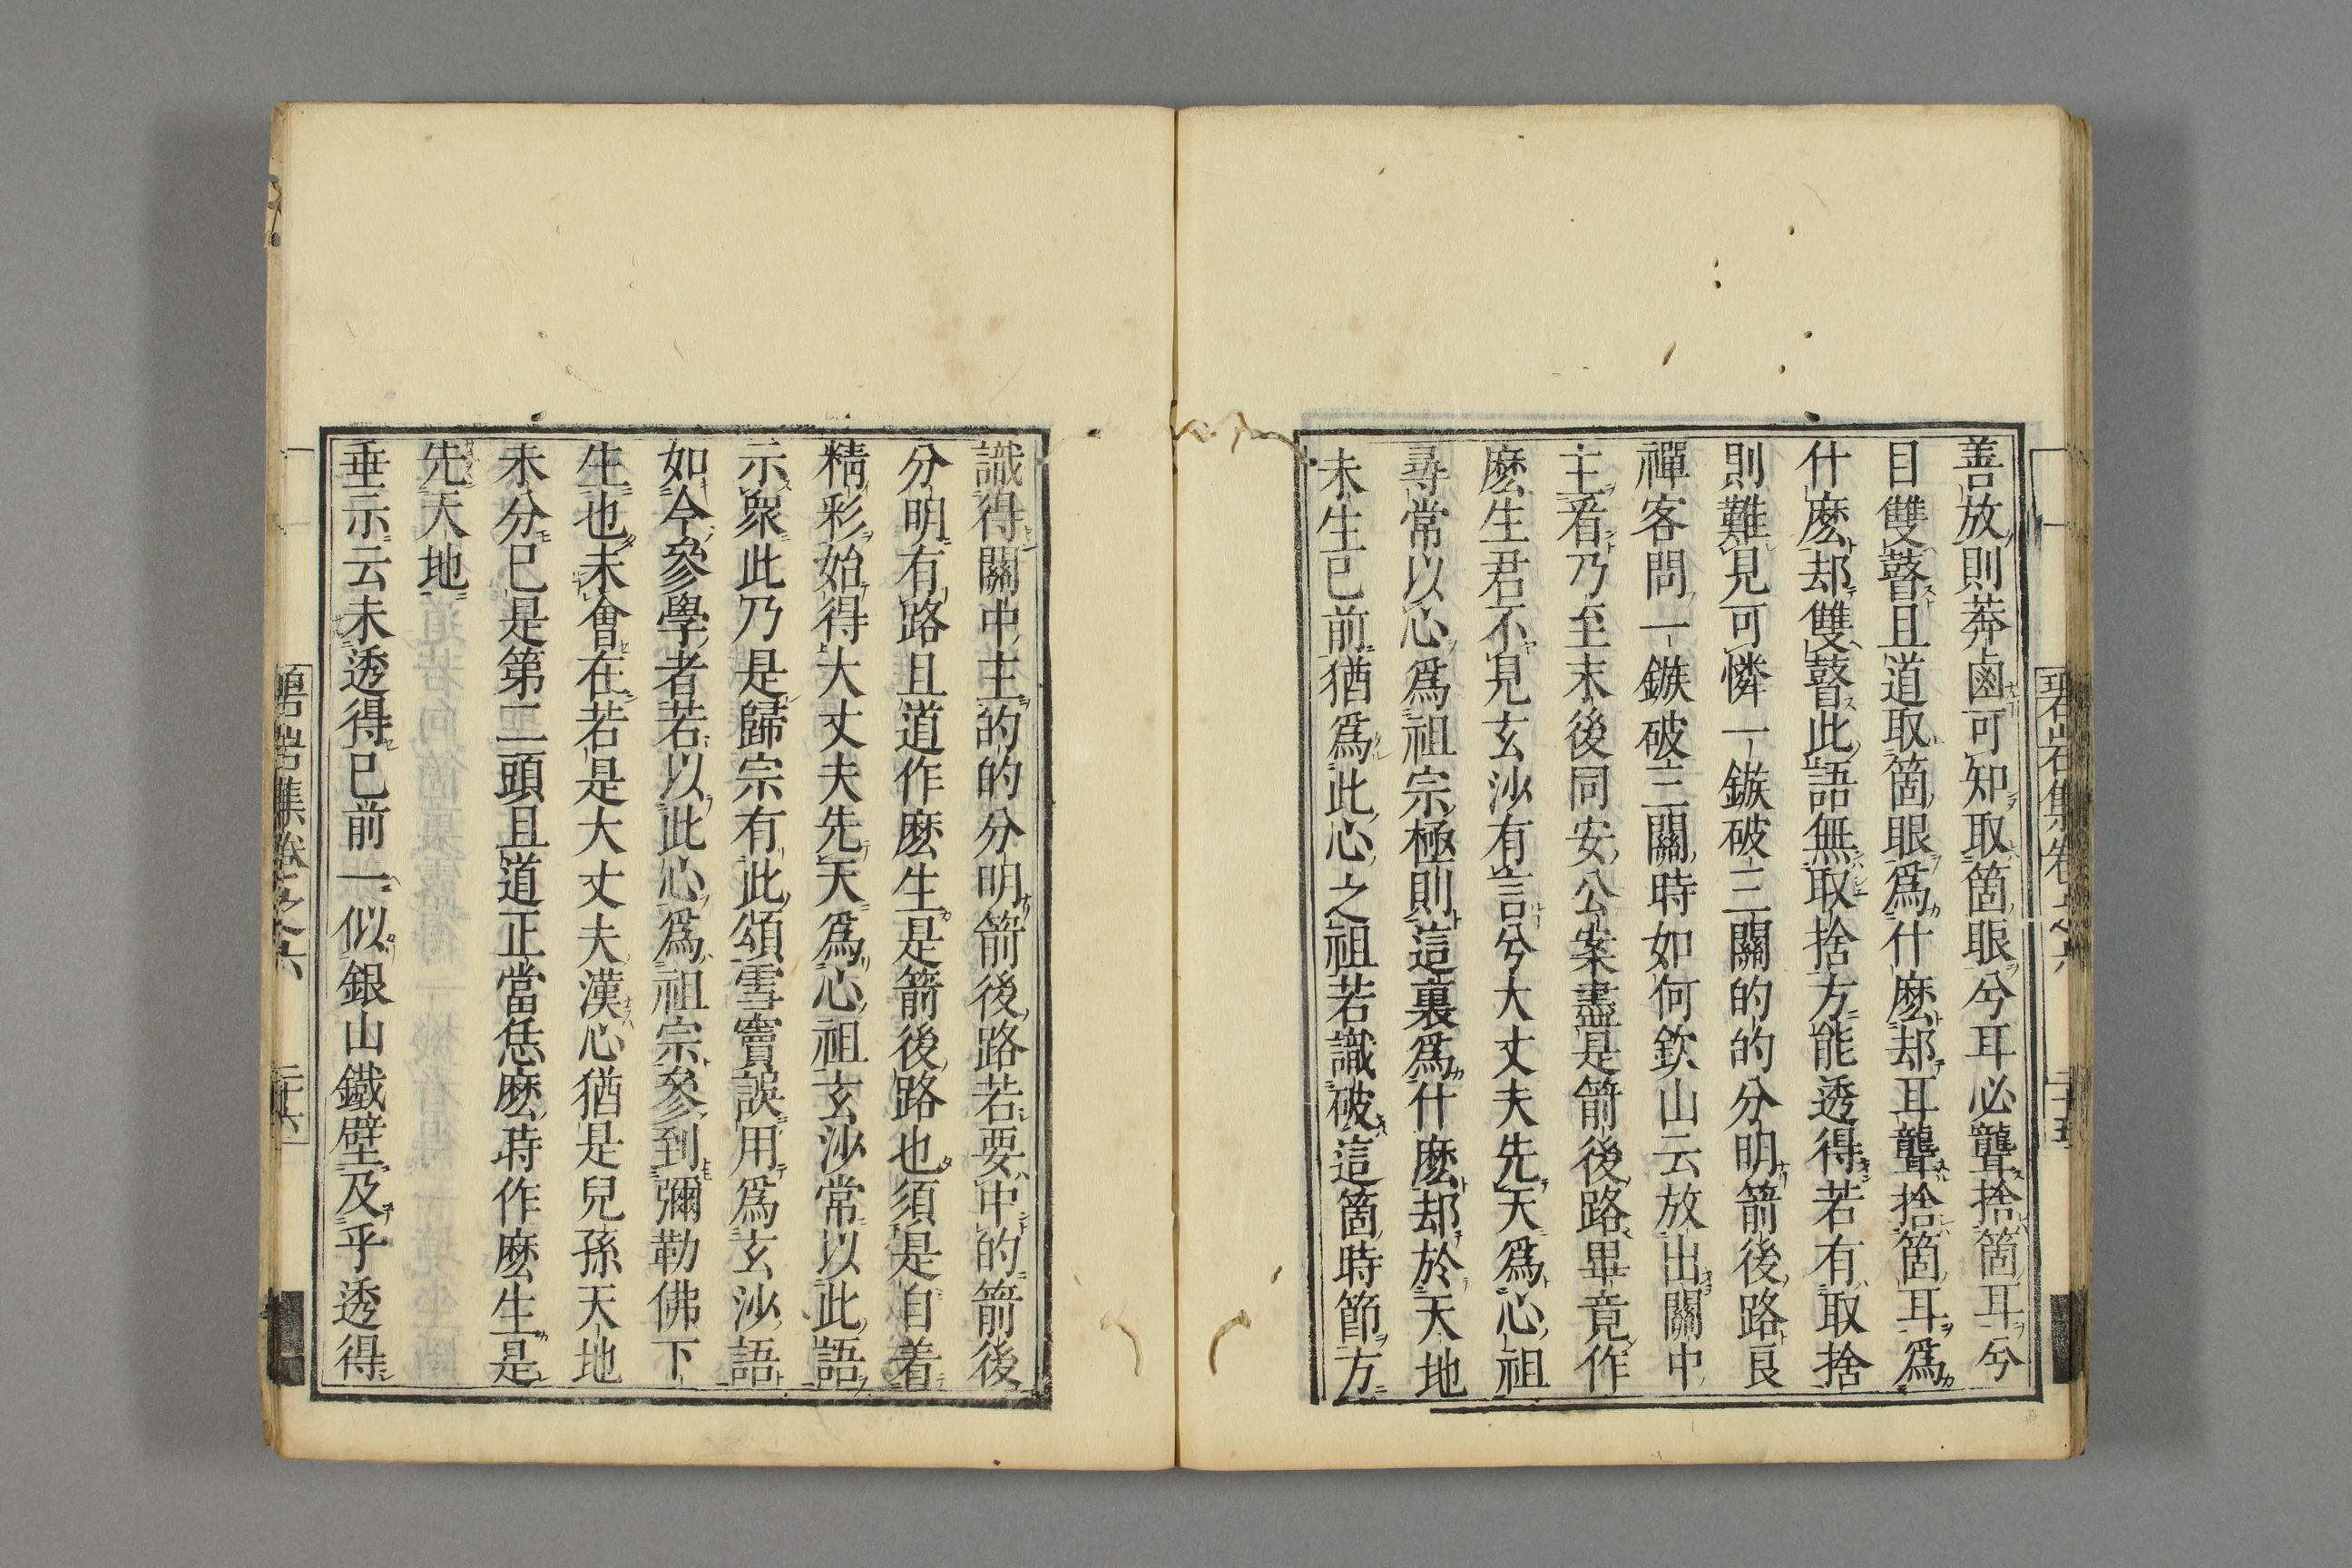 善放則莽鹵可知取箇眼兮耳必聾捨箇耳兮
目雙瞽且道取箇眼爲什麽却耳聾捨箇耳爲
什麽却雙瞽此語無取捨方能透得若有取捨
則難見可憐一鏃破三關的的分明箭後路良
禪客問一鏃破三關時如何欽山云放出關中
主看乃至末後同安公案盡是箭後路畢竟作
麽生君不見玄沙有言兮大丈夫先天爲心祖
尋常以心爲祖宗極則這裏爲什麽却於天地
未生已前猶爲此心之祖若識破這箇時節方
識得關中主的的分明箭後路若要中的箭後
分明有路且道作麽生是箭後路也須是自着
精彩始得大丈夫先天爲心祖玄沙常以此語
示衆此乃是歸宗有此頌雪竇誤用爲玄沙語
如今參學者若以此心爲祖宗參到彌勒佛下
生也未會在若是大丈夫漢心猶是兒孫天地
未分已是第二頭且道正當恁麽時作麽生是
先天地
垂示云未透得已前一似銀山鐵壁及乎透得